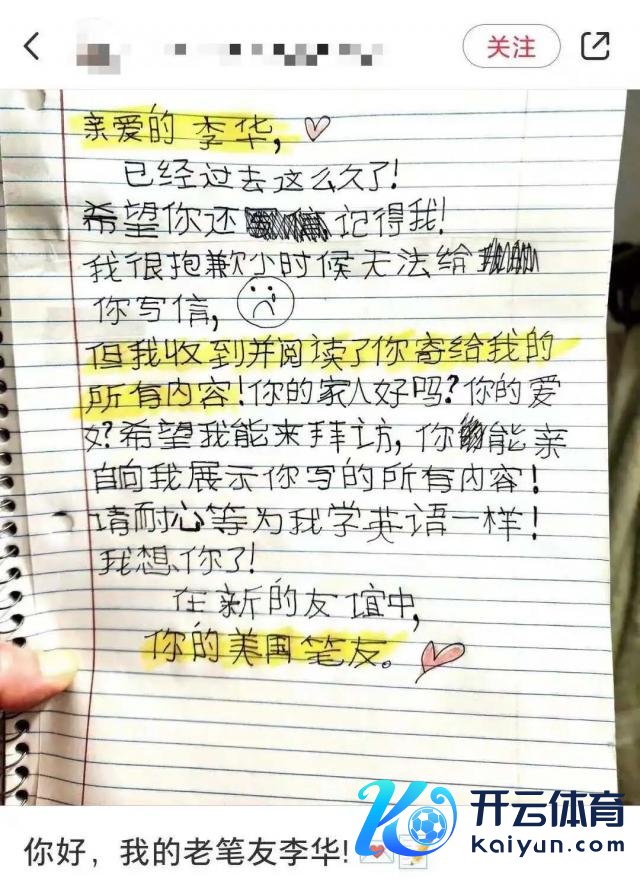 关注
亲爱的 李华,
已经过去这么久了!
希望你还 记得我!
我很抱歉小时候无法给
你写信,
但我收到并阅读了你寄给我的
所有内容!你的家人好吗?你的爱
好?希望我能来拜访,你 能亲
自向我展示你写的所有内容!
请耐心等为我学英语一样!
我想你了!
在新的友谊中,
你的美国笔友。
开云体育
kaiyun.com
你好，我的老笔友李华!